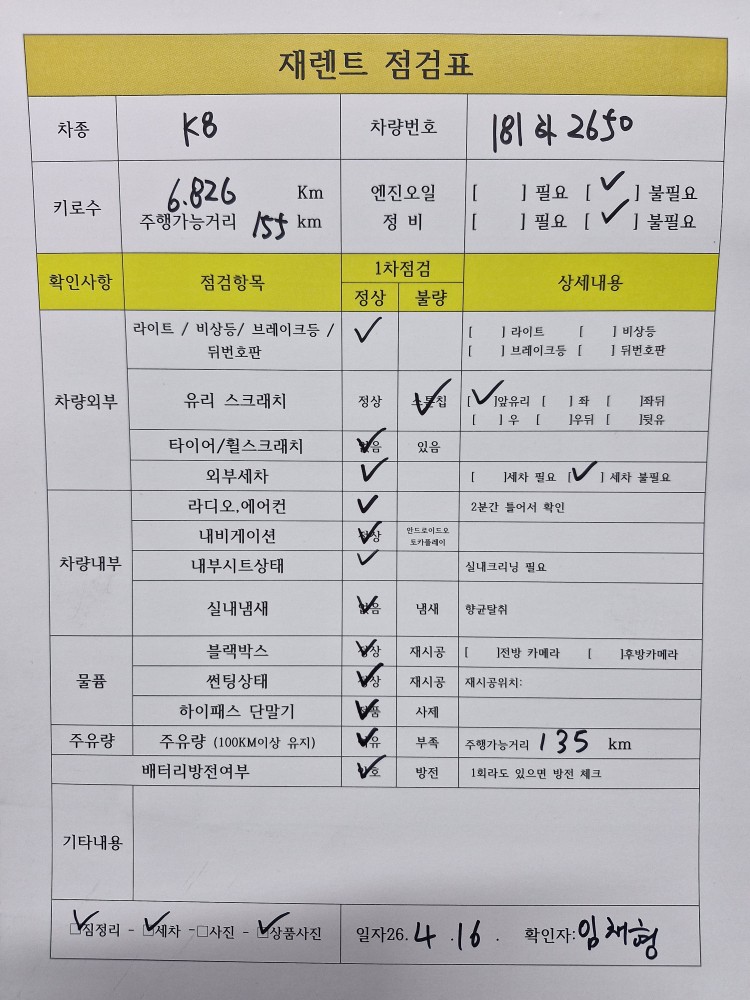 재렌트 점검표
차종 K8 차량번호 181 하 2650
키로수 6.826 Km 엔진오일 [ ] 필요 [✓] 불필요
주행가능거리 155 km 정 비 [ ] 필요 [✓] 불필요
확인사항 점검항목 1차점검 상세내용
정상 불량
차량외부
라이트 / 비상등/ 브레이크등 / ✓ [ ] 라이트 [ ] 비상등
뒤번호판 [ ] 브레이크등 [ ] 뒤번호판
유리 스크래치 정상 스톤칩 ✓ [✓]앞유리 [ ] 좌 [ ]좌뒤
[ ] 우 [ ]우뒤 [ ]뒷유
타이어/휠스크래치 없음 ✓ 있음
외부세차 ✓ [ ]세차 필요 [✓] 세차 불필요
차량내부
라디오,에어컨 ✓ 2분간 틀어서 확인
내비게이션 정상 ✓ 안드로이드오
토카플레이
내부시트상태 ✓ 실내크리닝 필요
실내냄새 없음 ✓ 냄새 향균탈취
물품
블랙박스 정상 ✓ 재시공 [ ]전방 카메라 [ ]후방카메라
썬팅상태 정상 ✓ 재시공 재시공위치:
하이패스 단말기 정품 ✓ 사제
주유량 주유량 (100KM이상 유지) ✓ 부족 주행가능거리 135 km
배터리방전여부 양호 ✓ 방전 1회라도 있으면 방전 체크
기타내용
☑짐정리 - ☑세차 -□사진 - ☑상품사진 일자26. 4 .16 . 확인자:임채형